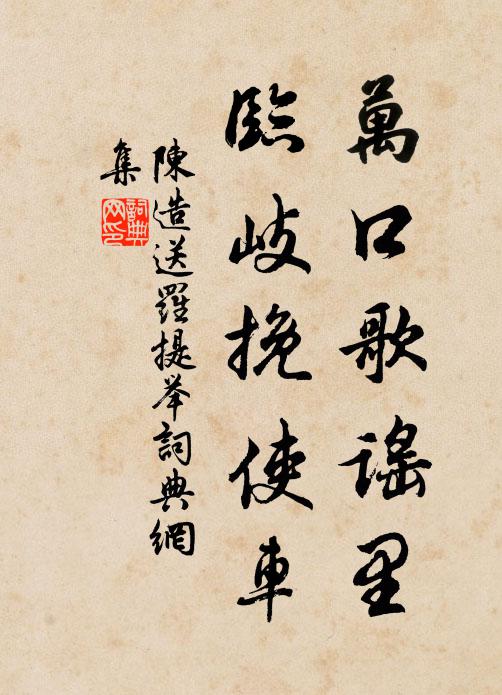 萬口歌謡里
臨岐挽使車
陳造送羅提举詞典網
集
詞典
网印